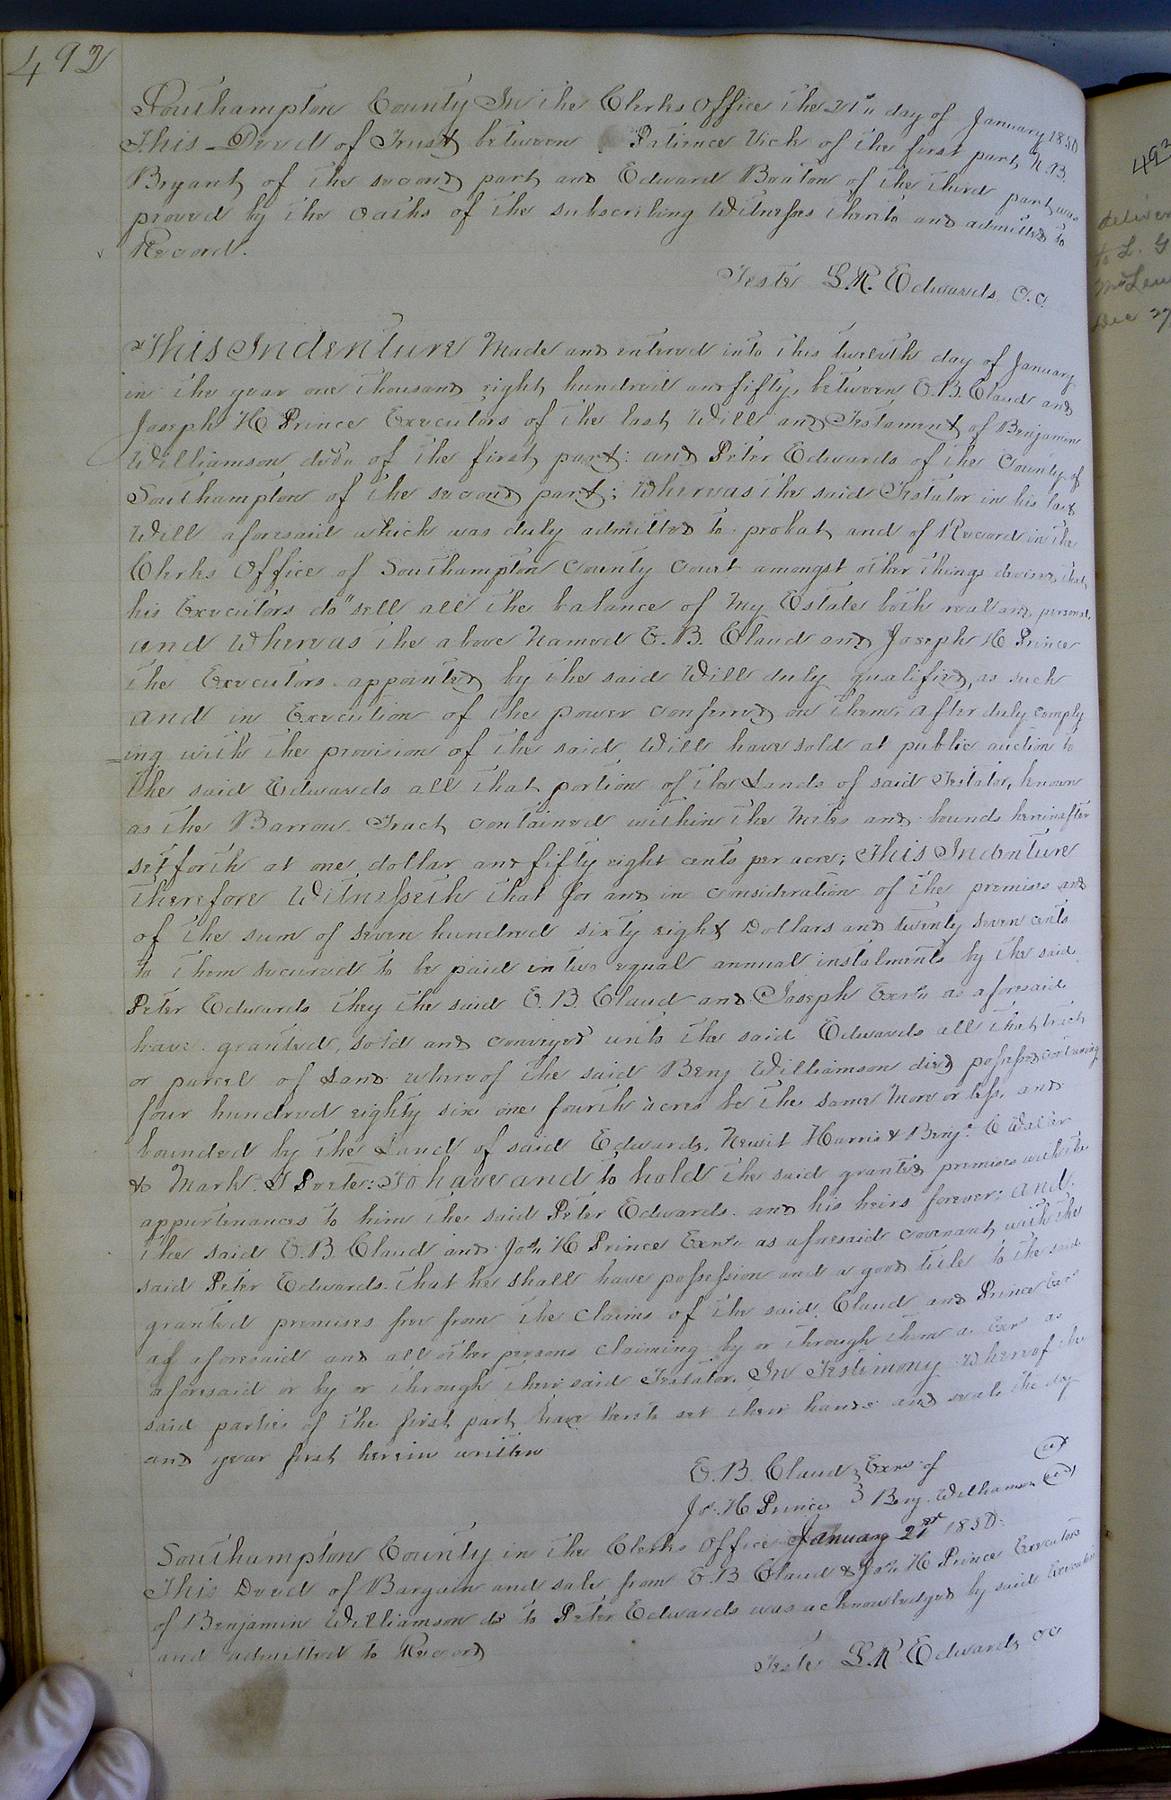 492
Southampton County In the Clerks Office the 21st day of January 1850
This Deed of Trust between Patience Vick of the first part, N. B.
Bryant of the second part and Edward Beaton of the third part, was
proved by the oaths of the subscribing Witnesses thereto and admitted to
Record.
Teste L. R. Edwards C. C.
This Indenture Made and entered into this twelvth day of January
in the year one thousand eight hundred and fifty, between E. B. Claud and
Joseph H Prince Executors of the last Will and Testament of Benjamin
Williamson decd. of the first part: and Peter Edwards of the County of
Southampton of the second part; Whereas the said Testator in his last
Will aforesaid which was duly admitted to probat and of Record in the
Clerks Office of Southampton County Court amongst other things devises that
his Executors do "sell all the balance of My Estate both real and personal,
and Whereas the above Named E. B. Claud and Joseph H Prince
the Executors appointed by the said Will duly qualified, as such
and in Execution of the power conferred on them, after duly comply
=ing with the provision of the said Will have sold at public auction to
the said Edwards all that portion of the Lands of said Testator, known
as the Barrow Tract contained within the Metes and bounds hereinafter
set forth at one dollar and fifty eight cents per acre; This Indenture
therefore Witnesseth that for and in consideration of the premises and
of the sum of seven hundred sixty eight Dollars and twenty seven cents
to them secured to be paid in two equal annual instalments by the said
Peter Edwards they the said E. B. Claud and Joseph Exrs as aforesaid
have granted, sold and conveyed unto the said Edwards all that tract
or parcel of Land whereof the said Benj Williamson died possessed containing
four hundred eighty six one fourth acres be the same More or less, and
bounded by the Land of said Edwards, Newit Harris & Benj. C Waller
& Mark. To have and to hold the said granted premises with the
appurtenances to him the said Peter Edwards and his heirs forever: And
the said E. B. Claud and Jos. H Prince Exrs as aforesaid covenant with the
said Peter Edwards that he shall have possession and a good title to the said
granted premises free from the Claims of the said Claud and Prince Exrs
as aforesaid and all other persons claiming by or through them as Exrs as
aforesaid or by or through their said Testator. In Testimony Whereof the
said parties of the first part have hereto set their hands and seals the day
and year first herein written
E. B. Claud } Exrs of
Jos. H Prince } Benj. Williamson
Southampton County in the Clerks Office January 21st 1850.
This Deed of Bargain and sale from E. B Claud & Jos. H Prince Executors
of Benjamin Williamson dec to Peter Edwards was acknowledged by said Executors
and admitted to Record
Teste L. R. Edwards C C
493
deliver
to L. G
Dec 27